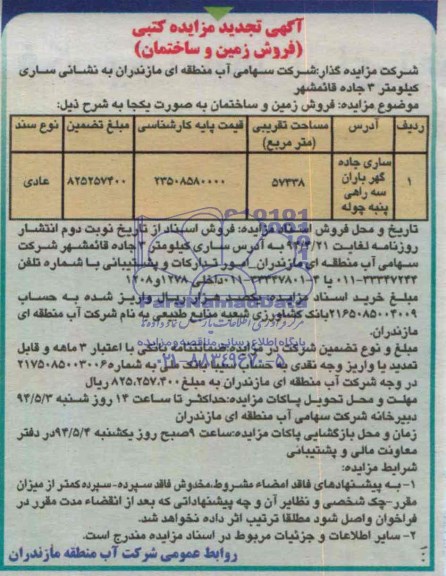 آگهی تجدید مزایده کتبی
(فروش زمین و ساختمان)
شرکت مزایده گذار:شرکت سهامی آب منطقه ای مازندران به نشانی ساری
کیلومتر ۳ جاده قائمشهر
موضوع مزایده: فروش زمین و ساختمان به صورت یکجا به شرح ذیل:
ردیف آدرس مساحت تقریبی (متر مربع) قیمت پایه کارشناسی مبلغ تضمین نوع سند
۱ ساری جاده گهر باران سه راهی پنبه چوله ۵۷۳۳۸ ۲۳۵۰۸۵۸۰۰۰۰ ۸۲۵۲۵۷۴۰۰ عادی
تاریخ و محل فروش اسناد مزایده: فروش اسناد از تاریخ نوبت دوم انتشار
روزنامه لغایت ۹۴/۴/۲۱ به آدرس ساری کیلومتر ۳ جاده قائمشهر شرکت
سهامی آب منطقه ای مازندران_امور تدارکات و پشتیبانی با شماره تلفن
۰۱۱-۳۳۳۴۷۲۴۴ یا ۴-۳۳۳۴۷۸۰۱-۰۱۱داخلی ۱۲۷۸و۱۲۰۸
مبلغ خرید اسناد مزایده: یکصد هزار ریال واریز شده به حساب
۲۱۶۵۰۸۵۰۰۴۰۰۹بانک کشاورزی شعبه منابع طبیعی به نام شرکت آب منطقه ای
مازندران.
مبلغ و نوع تضمین شرکت در مزایده:ضمانتنامه بانکی با اعتبار ۳ ماهه و قابل
تمدید یا واریز وجه نقدی به حساب سیبا بانک ملی به شماره۲۱۷۵۰۸۵۰۰۳۰۰۶
در وجه شرکت آب منطقه ای مازندران به مبلغ۸۲۵،۲۵۷،۴۰۰ ریال
مهلت و محل تحویل پاکات مزایده:حداکثر تا ساعت ۱۴ روز شنبه ۹۴/۵/۳
دبیرخانه شرکت سهامی آب منطقه ای مازندران
زمان و محل بازگشایی پاکات مزایده:ساعت ۹صبح روز یکشنبه ۹۴/۵/۴در دفتر
معاونت مالی و پشتیبانی
شرایط مزایده:
۱- به پیشنهادهای فاقد امضاء مشروط،مخدوش فاقد سپرده-سپرده کمتر از میزان
مقرر-چک شخصی و نظایر آن و چه پیشنهاداتی که بعد از انقضاء مدت مقرر در
فراخوان واصل شود مطلقا ترتیب اثر داده نخواهد شد.
۲- سایر اطلاعات و جزئیات مربوط در اسناد مزایده مندرج است.
روابط عمومی شرکت آب منطقه مازندران
ParsNamadData
پایگاه اطلاع رسانی مناقصه و مزایده
۰۲۱-۸۸۳۴۹۶۷۰-۵